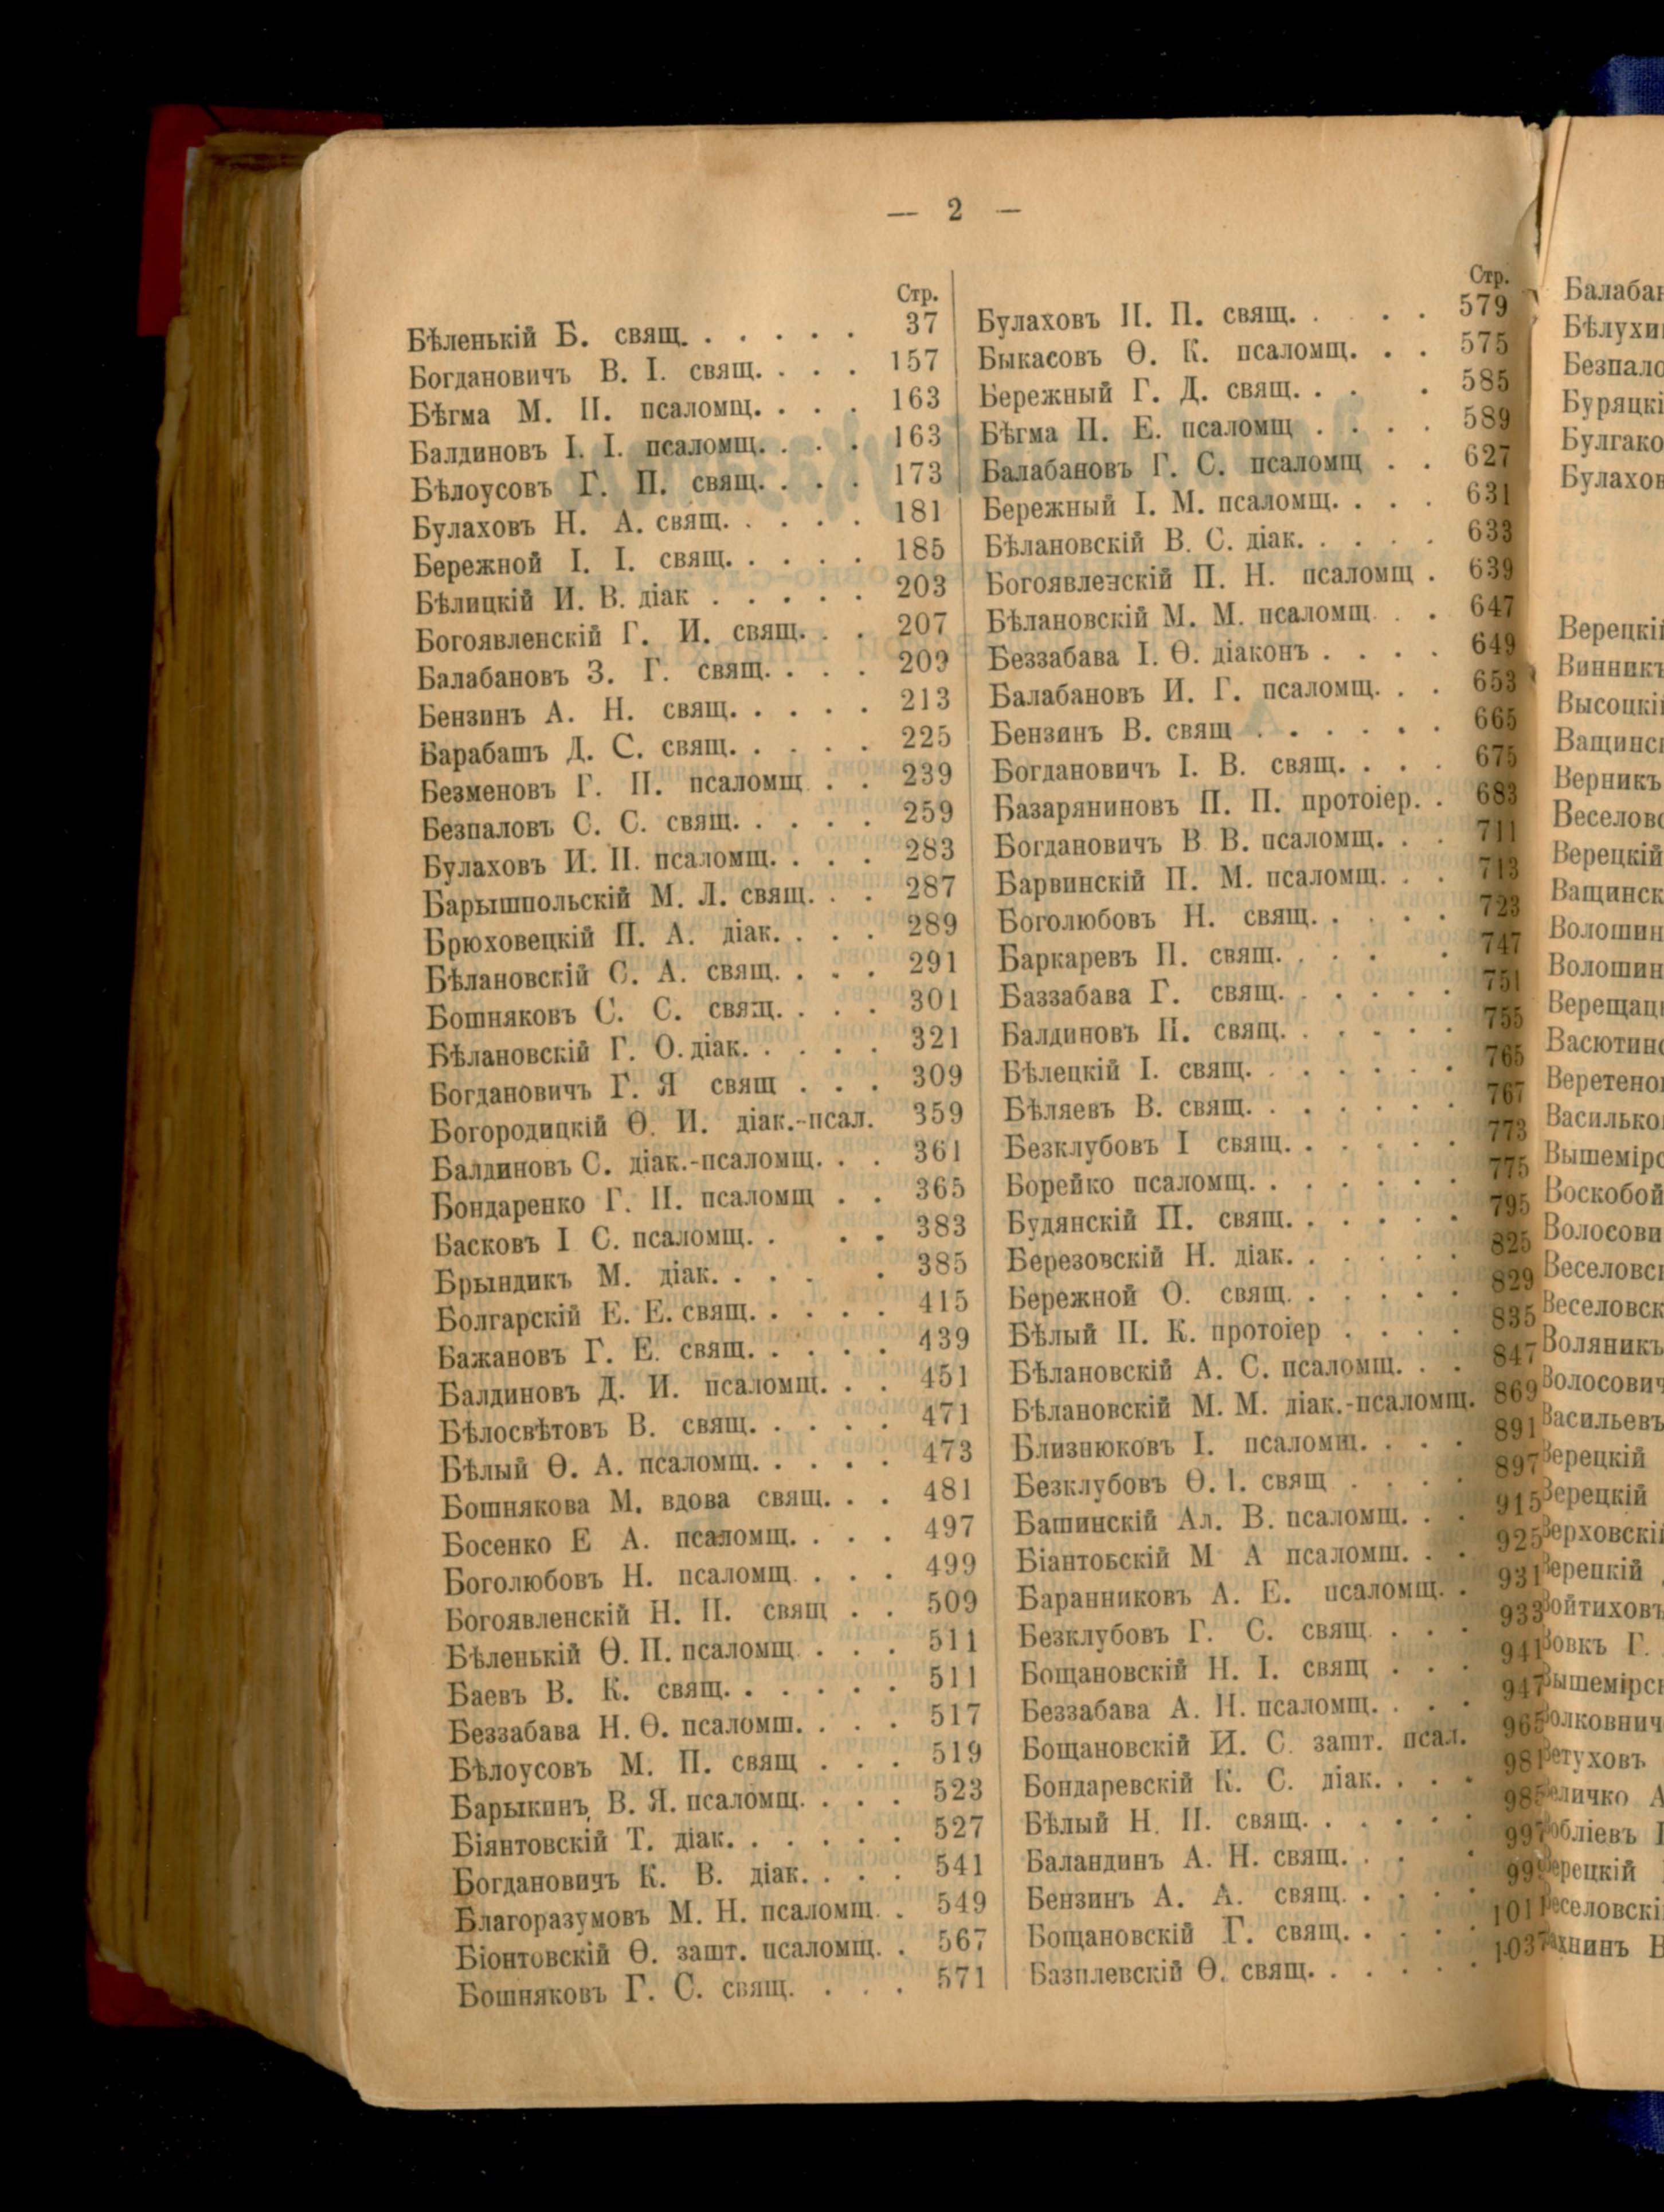 — 2 —
Стр.
Бѣленькій Б. свящ. . . . . . 37
Богдановичъ В. І. свящ. . . . 157
Бѣгма М. П. псаломщ. . . . 163
Балдиновъ І. І. псаломщ. . . . 163
Бѣлоусовъ Г. П. свящ. . . . 173
Булаховъ Н. А. свящ. . . . . 181
Бережной І. І. свящ. . . . . 185
Бѣлицкій И. В. діак . . . . . 203
Богоявленскій Г. И. свящ. . . 207
Балабановъ З. Г. свящ. . . . 209
Бензинъ А. Н. свящ. . . . . 213
Барабашъ Д. С. свящ. . . . . 225
Безменовъ Г. П. псаломщ . . 239
Безпаловъ С. С. свящ. . . . . 259
Булаховъ И. П. псаломщ. . . . 283
Барышпольскій М. Л. свящ. . . 287
Брюховецкій П. А. діак. . . . 289
Бѣлановскій С. А. свящ. . . . 291
Бошняковъ С. С. свящ. . . . 301
Бѣлановскій Г. О. діак. . . . . 321
Богдановичъ Г. Я свящ . . . 309
Богородицкій Ѳ. И. діак.-псал. 359
Балдиновъ С. діак.-псаломщ. . . 361
Бондаренко Г. П. псаломщ . . 365
Басковъ І С. псаломщ. . . . 383
Брындикъ М. діак. . . . . 385
Болгарскій Е. Е. свящ. . . . . 415
Бажановъ Г. Е. свящ. . . . . 439
Балдиновъ Д. И. псаломщ. . . 451
Бѣлосвѣтовъ В. свящ. . . . . 471
Бѣлый Ѳ. А. псаломщ. . . . . 473
Бошнякова М. вдова свящ. . . 481
Босенко Е А. псаломщ. . . . 497
Боголюбовъ Н. псаломщ . . . 499
Богоявленскій Н. П. свящ . . 509
Бѣленькій Ѳ. П. псаломщ . . . 511
Баевъ В. К. свящ. . . . . . 511
Беззабава Н. Ѳ. псаломщ. . . . 517
Бѣлоусовъ М. П. свящ . . . 519
Барыкинъ В. Я. псаломщ. . . . 523
Біянтовскій Т. діак. . . . . . 527
Богдановичъ К. В. діак. . . . 541
Благоразумовъ М. Н. псаломщ. . 549
Біонтовскій Ѳ. зашт. псаломщ. . 567
Бошняковъ Г. С. свящ. . . . 571
Стр.
Булаховъ П. П. свящ. . . . . 579
Быкасовъ Ѳ. К. псаломщ. . . 575
Бережный Г. Д. свящ. . . . 585
Бѣгма П. Е. псаломщ . . . . 589
Балабановъ Г. С. псаломщ . . 627
Бережный І. М. псаломщ. . . . 631
Бѣлановскій В. С. діак. . . . . 633
Богоявленскій П. Н. псаломщ . 639
Бѣлановскій М. М. псаломщ . . 647
Беззабава І. Ѳ. діаконъ . . . . 649
Балабановъ И. Г. псаломщ. . . 653
Бензинъ В. свящ . . . . . . 665
Богдановичъ І. В. свящ. . . . 675
Базаряниновъ П. П. протоіер. . 683
Богдановичъ В В. псаломщ. . . 711
Барвинскій П. М. псаломщ. . . 713
Боголюбовъ Н. свящ. . . . . 723
Баркаревъ П. свящ. . . . . 747
Баззабава Г. свящ. . . . . . 751
Балдиновъ П. свящ. . . . . . 755
Бѣлецкій І. свящ. . . . . . . 765
Бѣляевъ В. свящ. . . . . . . 767
Безклубовъ І свящ. . . . . . 773
Борейко псаломщ. . . . . . . 775
Будянскій П. свящ. . . . . . 795
Березовскій Н. діак. . . . . . 825
Бережной О. свящ. . . . . . 829
Бѣлый П. К. протоіер . . . . 835
Бѣлановскій А. С. псаломщ. . . 847
Бѣлановскій М. М. діак.-псаломщ. 869
Близнюковъ І. псаломщ. . . . 891
Безклубовъ Ѳ. І. свящ . . . . 897
Башинскій Ал. В. псаломщ. . . 915
Біантовскій М А псаломщ. . . 925
Баранниковъ А. Е. псаломщ. . 931
Безклубовъ Г. С. свящ. . . . 933
Бощановскій Н. І. свящ . . . 941
Беззабава А. Н. псаломщ. . . . 947
Бощановскій И. С. зашт. псал. 965
Бондаревскій К. С. діак. . . . 981
Бѣлый Н. П. свящ. . . . . . 985
Баландинъ А. Н. свящ. . . . 997
Бензинъ А. А. свящ. . . . .
Бощановскій Г. свящ. . . . . 1011
Базилевскій Ѳ. свящ. . . . . . 1037